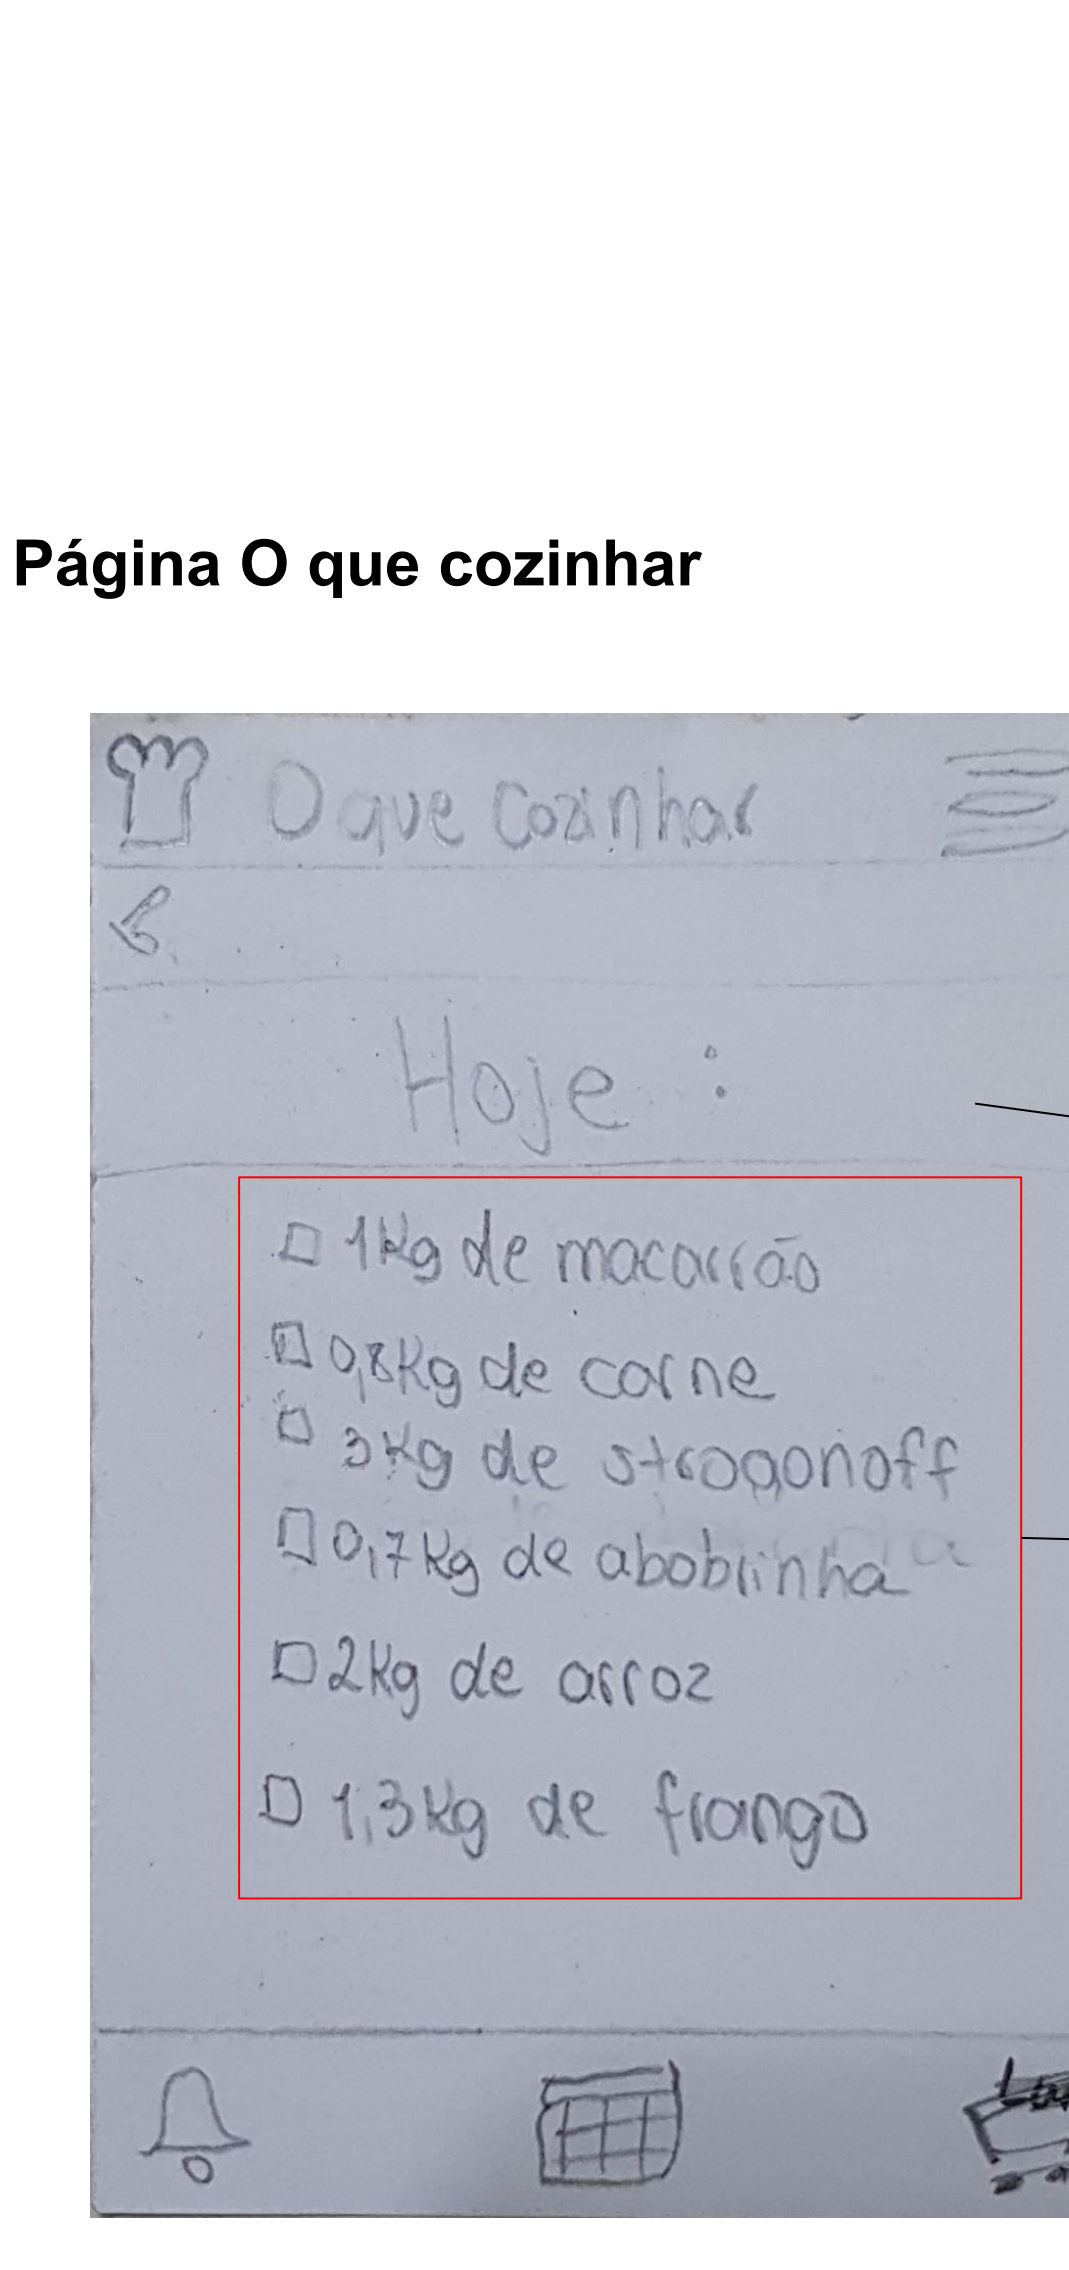 Página O que cozinhar
O que cozinhar
Hoje :
1kg de macarrão
0,8kg de carne
3kg de strogonoff
0,7kg de abobrinha
2kg de arroz
1,3kg de frango